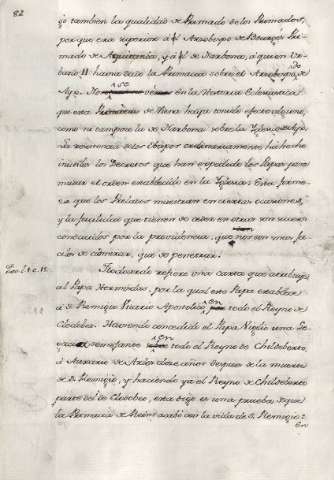 82
go tambien la qualidad de Primado de los Primados,
por que era superior à el Arzobispo de Bourges Pri-
mado de Aquitania, y à el de Narbona, à quien Ur-
bano II havia dado la Primacia sobre el Arzobispado de
en la Historia Eclesiastica
que esta Primacia de Viena haya tenido efecto alguno,
como ni tampoco la de Narbona sobre la
la resistencia de los Obispos ordinariamente ha hecho
inutiles los Decretos que han expedido los Papas para
mudar el orden establecido en la Iglesia. Esta firme-
za que los Prelados muestran en ciertas ocasiones,
y la facilidad que tienen de ceder en otras son
conducidas por la providencia, que
ciles de admirar, que de penetrar.
Flodoardo refiere una carta que atribuye
al Papa Hormisdas por la qual este Papa establece
à S. Remigio Vicario Apostolico en todo el Reyno de
Clodoveo. Haviendo concedido el Papa Vigilio una
semejante en todo el Reyno de Childeberto,
à Aureliano de Arles doce años despues de la muerte
de S. Remigio, y haciendo ya el Reyno de Childeberto
parte del de Clodoveo, esta dejo es una prueba, de que
la Primacia de Reims acabó con la vida de S. Remigio:
En